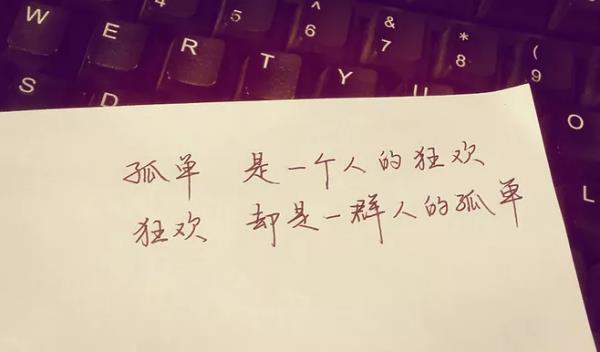 W E R T Y U O
4 $ 5 ^ 6 & 7 * 8 ( 9
S D L
孤单 是一个人的狂欢
狂欢 却是一群人的孤单